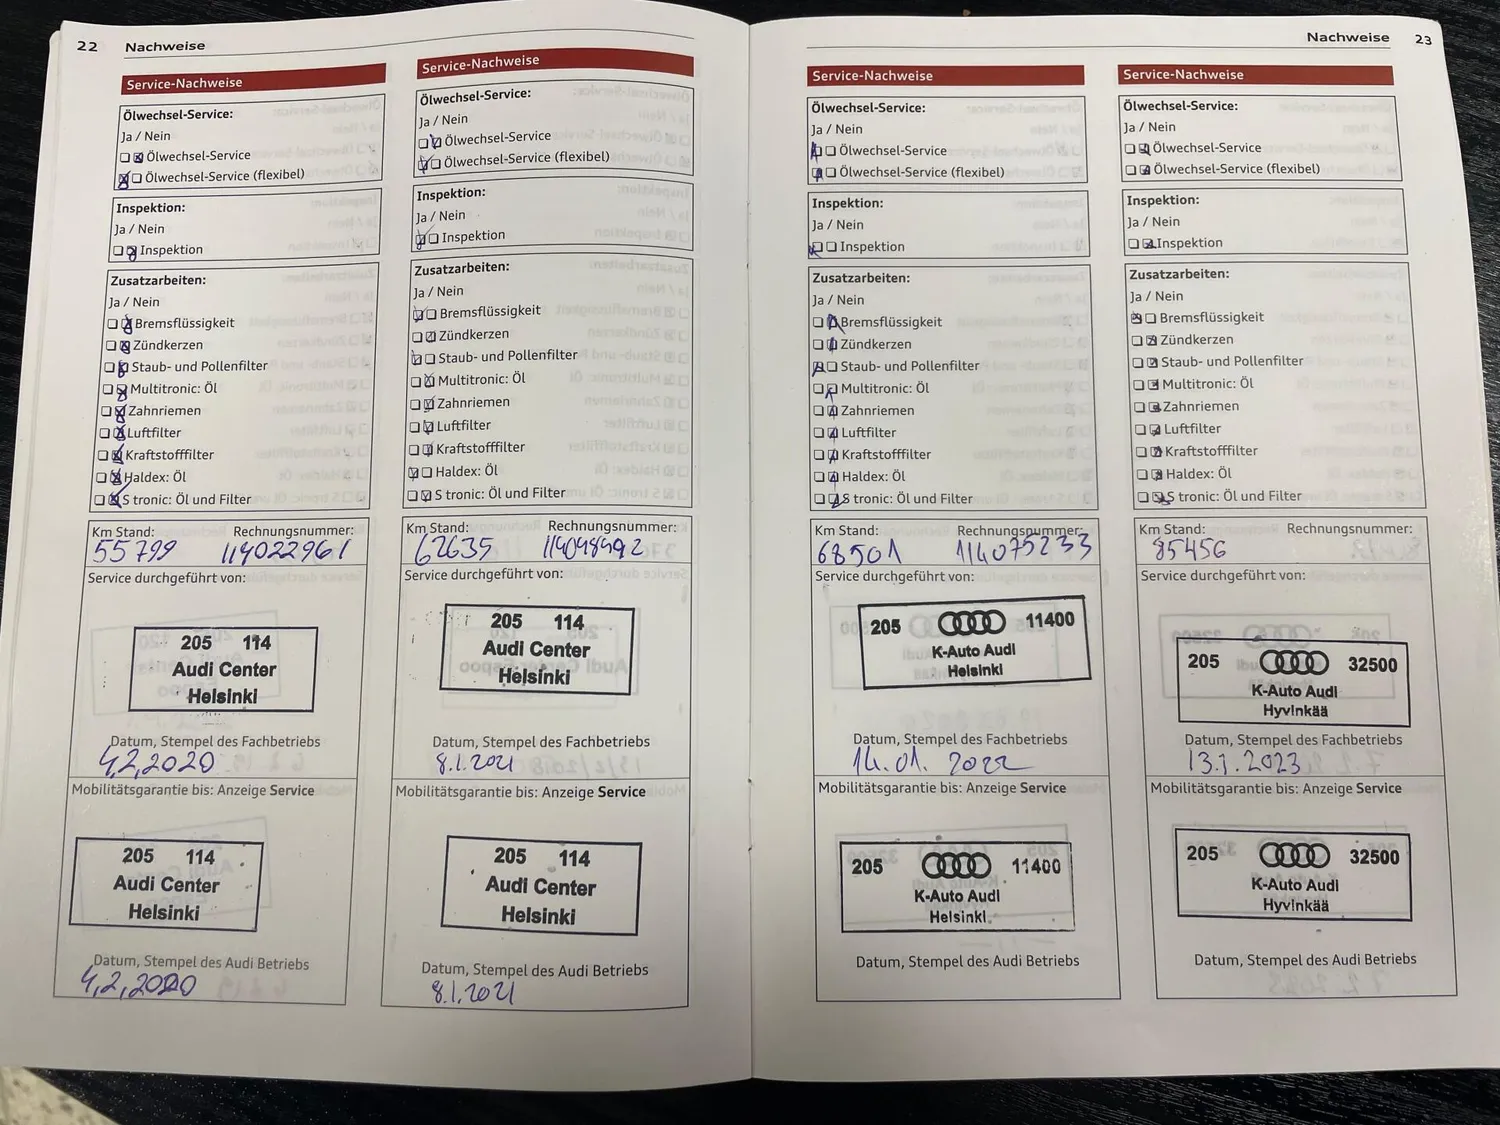 22 Nachweise
Service-Nachweise
Ölwechsel-Service:
Ja / Nein
Ölwechsel-Service
Ölwechsel-Service (flexibel)
Inspektion:
Ja / Nein
Inspektion
Zusatzarbeiten:
Ja / Nein
Bremsflüssigkeit
Zündkerzen
Staub- und Pollenfilter
Multitronic: Öl
Zahnriemen
Luftfilter
Kraftstofffilter
Haldex: Öl
S tronic: Öl und Filter
Km Stand: Rechnungsnummer:
55799 114022961
Service durchgeführt von:
205 114
Audi Center
Helsinki
Datum, Stempel des Fachbetriebs
4,2,2020
Mobilitätsgarantie bis: Anzeige Service
205 114
Audi Center
Helsinki
Datum, Stempel des Audi Betriebs
4,2,2020
Service-Nachweise
Ölwechsel-Service:
Ja / Nein
Ölwechsel-Service
Ölwechsel-Service (flexibel)
Inspektion:
Ja / Nein
Inspektion
Zusatzarbeiten:
Ja / Nein
Bremsflüssigkeit
Zündkerzen
Staub- und Pollenfilter
Multitronic: Öl
Zahnriemen
Luftfilter
Kraftstofffilter
Haldex: Öl
S tronic: Öl und Filter
Km Stand: Rechnungsnummer:
62635 114048492
Service durchgeführt von:
205 114
Audi Center
Helsinki
Datum, Stempel des Fachbetriebs
8.1.2021
Mobilitätsgarantie bis: Anzeige Service
205 114
Audi Center
Helsinki
Datum, Stempel des Audi Betriebs
8.1.2021
Nachweise 23
Service-Nachweise
Ölwechsel-Service:
Ja / Nein
Ölwechsel-Service
Ölwechsel-Service (flexibel)
Inspektion:
Ja / Nein
Inspektion
Zusatzarbeiten:
Ja / Nein
Bremsflüssigkeit
Zündkerzen
Staub- und Pollenfilter
Multitronic: Öl
Zahnriemen
Luftfilter
Kraftstofffilter
Haldex: Öl
S tronic: Öl und Filter
Km Stand: Rechnungsnummer:
68501 114075233
Service durchgeführt von:
205 11400
K-Auto Audi
Helsinki
Datum, Stempel des Fachbetriebs
14.01. 2022
Mobilitätsgarantie bis: Anzeige Service
205 11400
K-Auto Audi
Helsinki
Datum, Stempel des Audi Betriebs
Service-Nachweise
Ölwechsel-Service:
Ja / Nein
Ölwechsel-Service
Ölwechsel-Service (flexibel)
Inspektion:
Ja / Nein
Inspektion
Zusatzarbeiten:
Ja / Nein
Bremsflüssigkeit
Zündkerzen
Staub- und Pollenfilter
Multitronic: Öl
Zahnriemen
Luftfilter
Kraftstofffilter
Haldex: Öl
S tronic: Öl und Filter
Km Stand: Rechnungsnummer:
85456
Service durchgeführt von:
205 32500
K-Auto Audi
Hyvinkää
Datum, Stempel des Fachbetriebs
13.1.2023
Mobilitätsgarantie bis: Anzeige Service
205 32500
K-Auto Audi
Hyvinkää
Datum, Stempel des Audi Betriebs